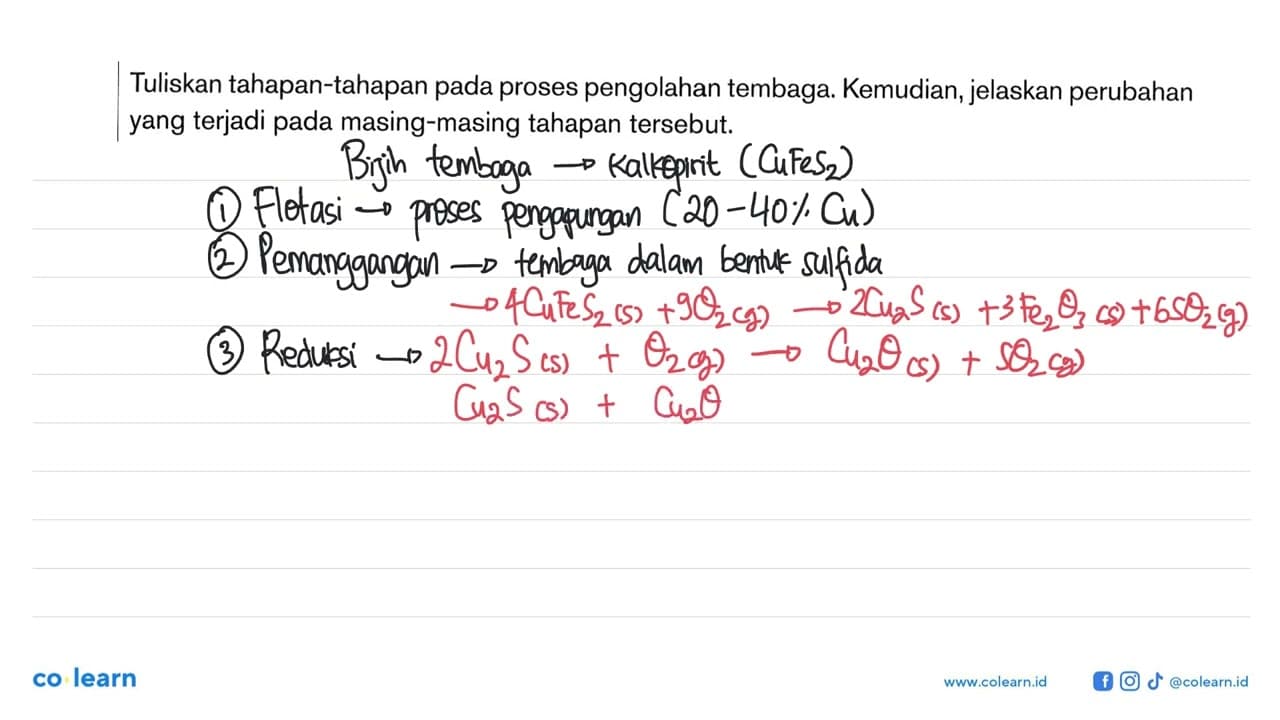 Tuliskan tahapan-tahapan pada proses pengolahan tembaga. Kemudian, jelaskan perubahan
yang terjadi pada masing-masing tahapan tersebut.
Bijih tembaga → Kalkopirit (CuFeS₂)
① Flotasi → proses pengapungan (20-40% Cu)
② Pemanggangan → tembaga dalam bentuk sulfida
→ 4CuFeS₂(s) + 9O₂(g) → 2Cu₂S(s) + 3Fe₂O₃(s) + 6SO₂(g)
③ Reduksi → 2Cu₂S(s) + O₂(g) → Cu₂O(s) + SO₂(g)
Cu₂S(s) + Cu₂O
co learn
www.colearn.id
@colearn.id